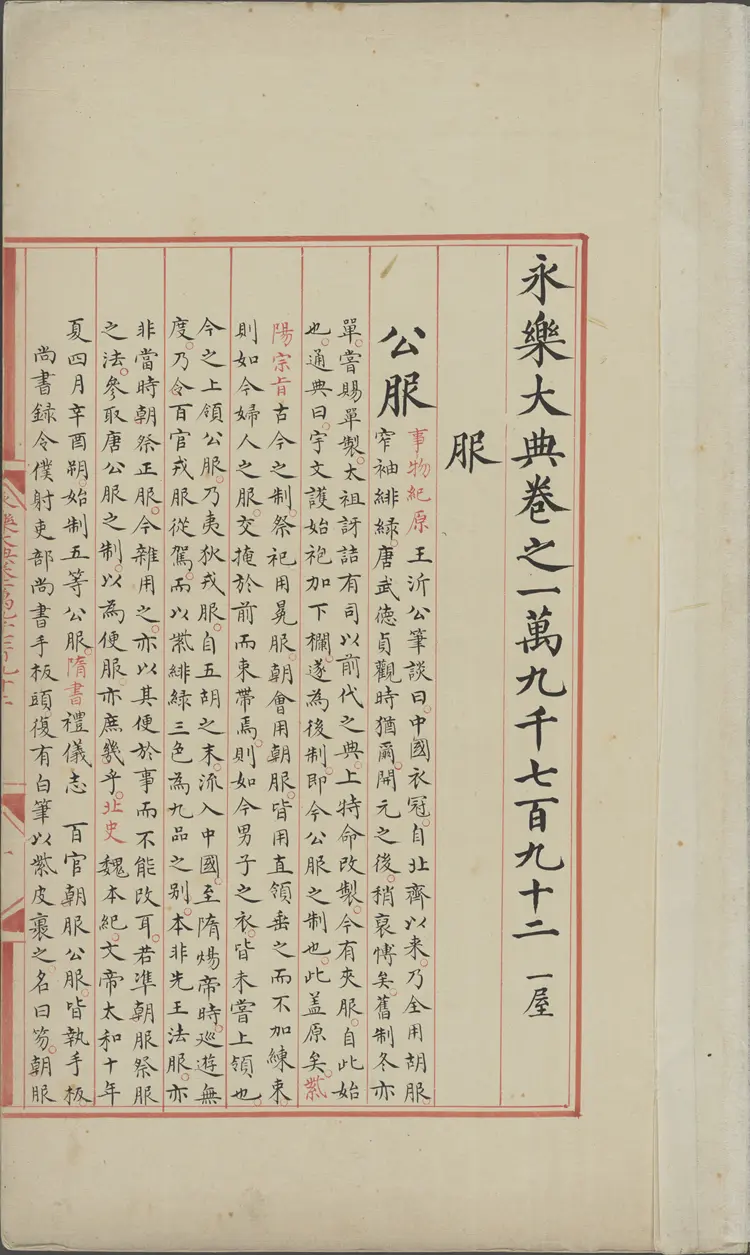 永樂大典卷之一萬九千七百九十二 一屋
服
公服
事物紀原王沂公筆談曰中國衣冠自北齊以來乃全用胡服
窄袖緋綠唐武德貞觀時猶爾開元之後稍裒愽矣舊制冬亦
單嘗賜單製太祖訝詰有司以前代之典上特命改製今有夾服自此始
也通典曰宇文護始袍加下欄遂為後制即今公服之制也此盖原矣紫
陽宗旨古今之制祭祀用冕服朝會用朝服皆用直領垂之而不加練束
則如今婦人之服交掩於前而束帶焉則如今男子之衣皆未嘗上領也
今之上領公服乃夷狄戎服自五胡之末流入中國至隋煬帝時廵遊無
度乃令百官戎服從駕而以紫緋綠三色為九品之别本非先王法服亦
非當時朝祭正服今雜用之亦以其便於事而不能改耳若凖朝服祭服
之法參取唐公服之制以為便服亦庶幾乎北史魏本紀文帝太和十年
夏四月辛酉朔始制五等公服隋書禮儀志 百官朝服公服皆執手板
尚書録令僕射吏部尚書手板頭復有白筆以紫皮裹之名曰笏朝服